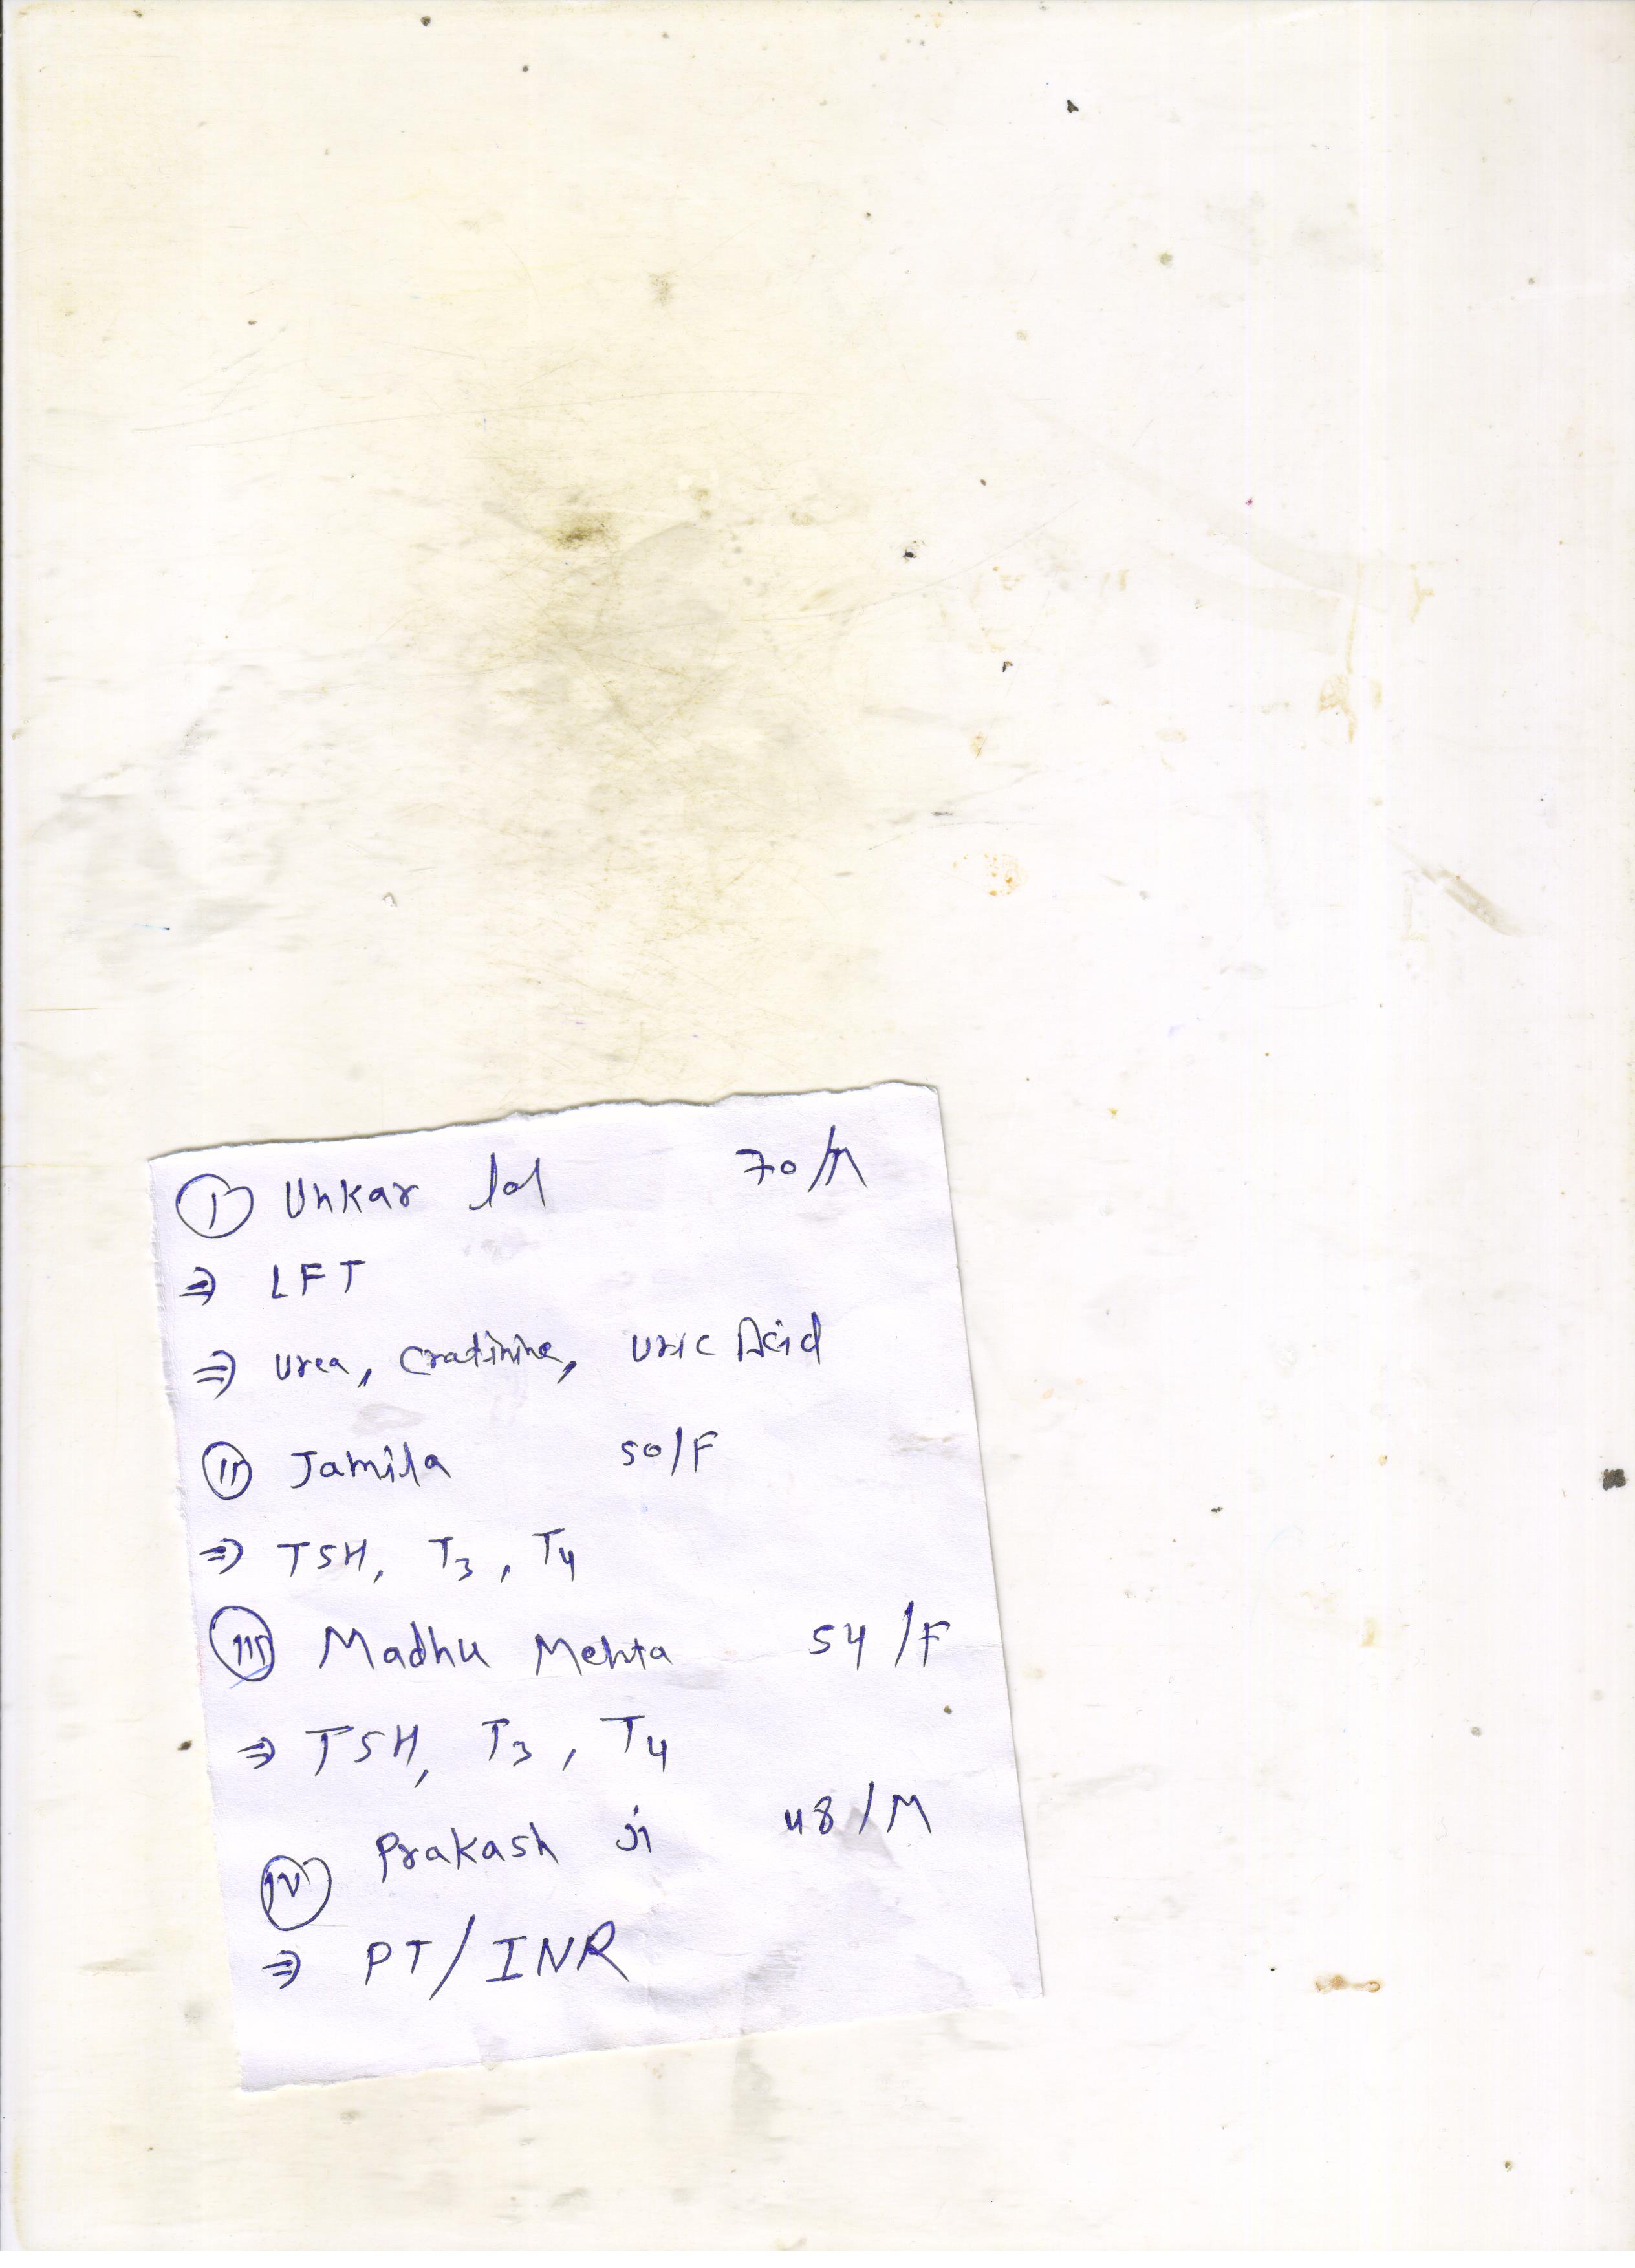 (I) Unkar lal 70/M
⇒ LFT
⇒ Urea, Cratinine, Uric Acid
(II) Jamila 50/F
⇒ TSH, T3, T4
(III) Madhu Mehta 54/F
⇒ TSH, T3, T4
(IV) Prakash ji 48/M
⇒ PT/INR